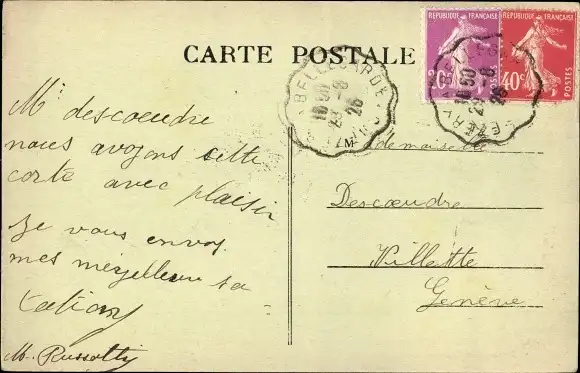 CARTE POSTALE
REPUBLIQUE FRANÇAISE
20c
POSTES
REPUBLIQUE FRANÇAISE
40c
POSTES
BELLEGARDE
16 50
29 -8
26
16 50
29 -8
26
Mlle descoendre
nous avoyons cette
carte avec plaisir
Je vous envoy
mes meyelleure sa
lutations
M.
Mademoiselle
Descoendre
Villette
Genève